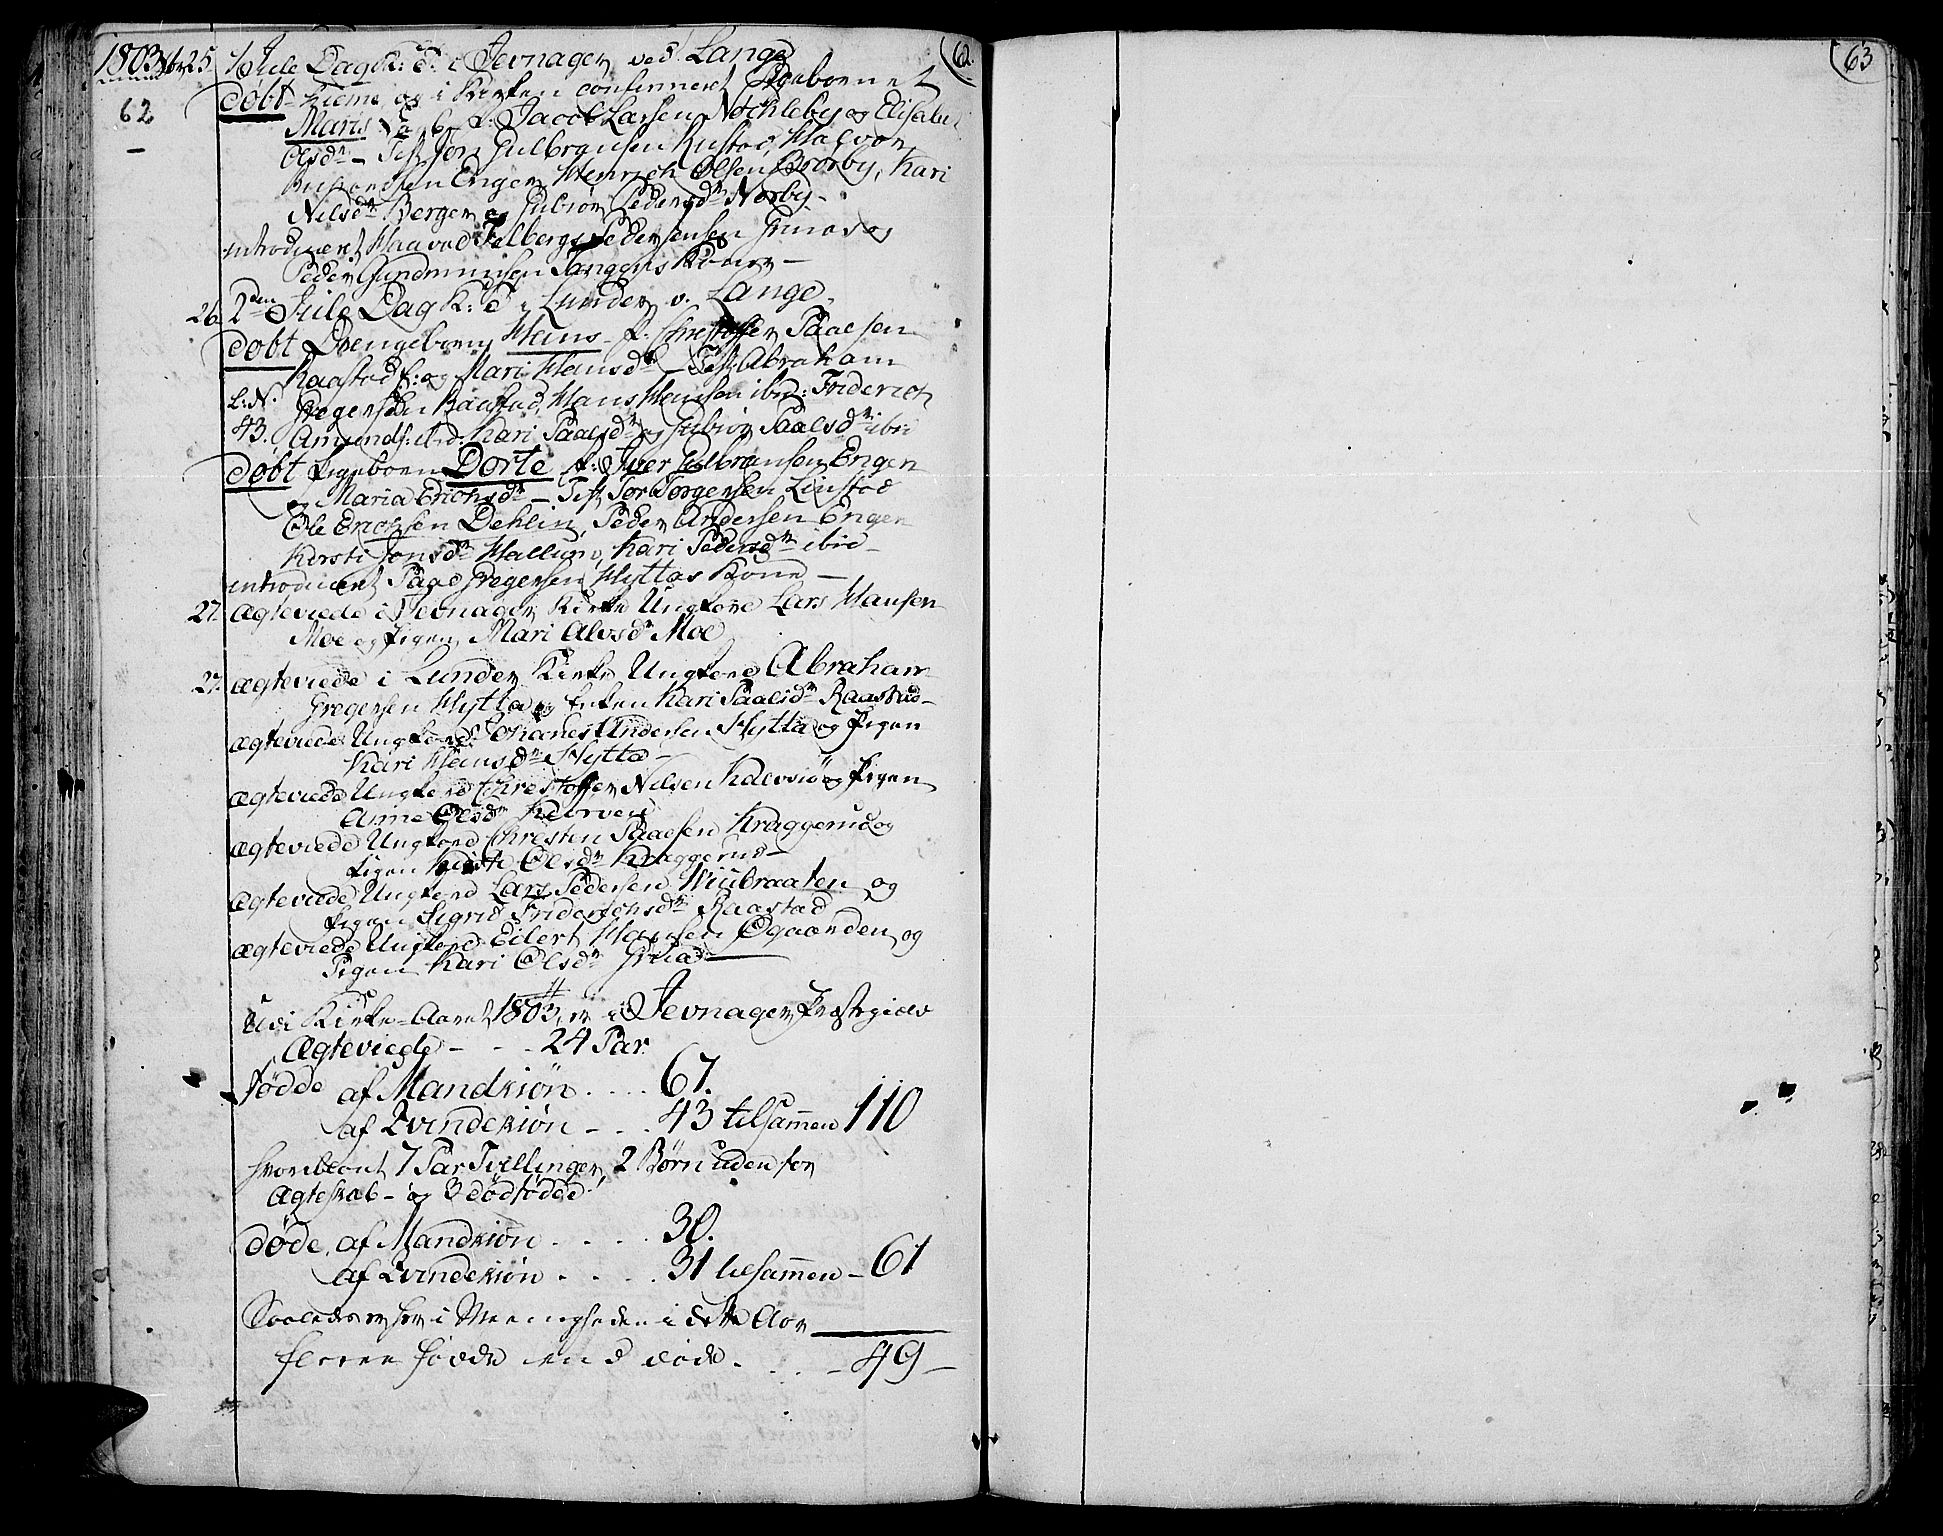 1803 Xbr 25. 1. Jule Dag K: T: i Jevnager ved S. Lange
62
62.
63
døbt hieme, og i Kirken confirmeret Pigebarnet
Maris f: Jacob Larsen Nøchleby og Elisabet
Olsdr – Test: Jon Gulbransen Rustad, Halvor
Enger, Henrich Olsen Brørby, Kari
Nilsdr Berger og Gubiør Pedersdr Norby –
introduceret Haavod Pedersen Grinas og
Peder Gundmunsen Tanggens Koner –
26. 2den Jule Dag K: T i Lunder v. Lange.
døbt Drengebarn Hans f. Christoffer Paaelsen
Raastad f: og Mari Hansdr – Test: Abraham
L: N. Gregersen Raastad, Hans Hansen ibid: Friderich
43. Amunds: ibid. Kari Paalsdr og Gubiør Paalsdr ibid
døbt Pigebarn Dorte f: Iver Gulbransen Engen
og Maria Erichsdr – Test: Tor Torgersen Linstad
Ole Erichsen Dehlin, Peder Andersen Engen
Kirsti Jonsdr Hallum, Kari Pedersdr ibid –
introduceret Paael Gregersen Hyttas Kone –
27. Ægteviede i Jevnager Kirke Ungkarl Lars Hansen
Moe og Pigen Mari Alvsdr Moe
27. Ægteviede i Lunder Kirke Ungkarl Abraham
Gregersen Hytta og Enken Kari Paalsdr Raastad –
Ægteviede Ungkarl Johannes Andersen Hytta og Pigen
Kari Hansdr Hytta –
Ægteviede Ungkarl Christoffer Nilsen Kalvsiø og Pigen
Anne Olsdr
Ægteviede Ungkarl Christen Paaelsen Kraggerud og
Pigen Olsdr Kraggerud –
Ægteviede Ungkarl Lars Pedersen Wiibraaten og
Pigen Sigrid Friderichsdr Raastad
Ægteviede Ungkarl Eilert Hansen Øgaarden og
Pigen Kari Olsdr Grina –
Udi Kirke-Aaret 1803, er i Jevnager Præstegield
Ægteviede – – – 24 Par
fødde af Mandkiøn . . . . 67.
af Qvindekiøn – – . 43 tilsammen 110
hvoriblant 7 Par Tvillinger, 2 Børn uden for
Ægteskab – og 3 dødfødde.
døde, af Mandkiøn . . . . 30.
af Qvindekiøn . . . . 31 tilsammen – 61
Saaledes er her i Meenigheden i dette Aar
fleere fødde end døde. . . – 49 –